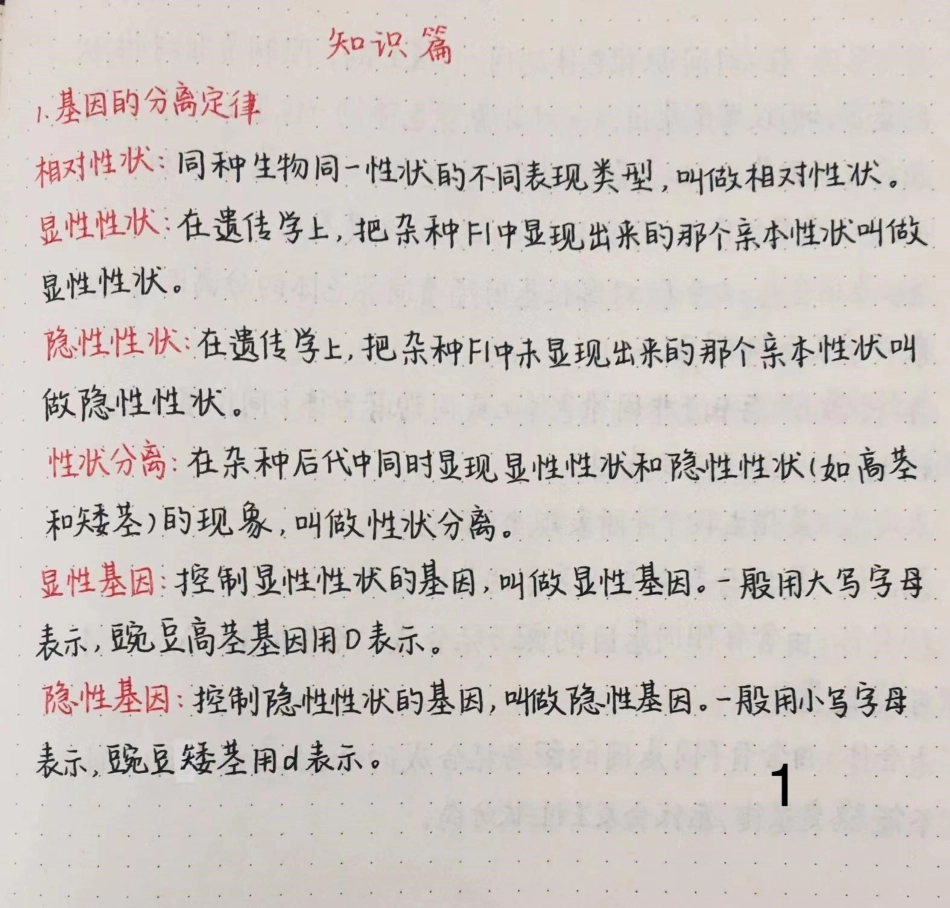 知识篇
1.基因的分离定律
相对性状:同种生物同一性状的不同表现类型,叫做相对性状。
显性性状:在遗传学上,把杂种F1中显现出来的那个亲本性状叫做
显性性状。
隐性性状:在遗传学上,把杂种F1中未显现出来的那个亲本性状叫
做隐性性状。
性状分离:在杂种后代中同时显现显性性状和隐性性状(如高茎
和矮茎)的现象,叫做性状分离。
显性基因:控制显性性状的基因,叫做显性基因。一般用大写字母
表示,豌豆高茎基因用D表示。
隐性基因:控制隐性性状的基因,叫做隐性基因。一般用小写字母
表示,豌豆矮茎用d表示。
1